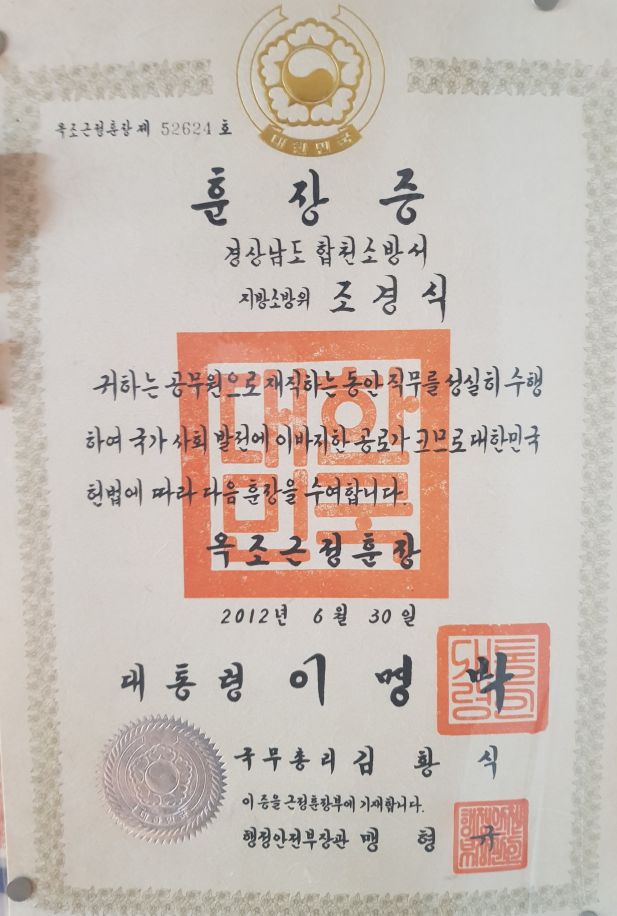 대한민국
옥조근정훈장 제 52624 호
훈장증
경상남도 합천소방서
지방소방위 조경식
귀하는 공무원으로 재직하는 동안 직무를 성실히 수행
하여 국가 사회 발전에 이바지한 공로가 크므로 대한민국
헌법에 따라 다음 훈장을 수여합니다.
대한
민국
옥조근정훈장
2012년 6월 30일
대통령 이명박
국무총리 김황식
대한민국
이 증을 근정훈장부에 기재합니다.
행정안전부장관 맹형규